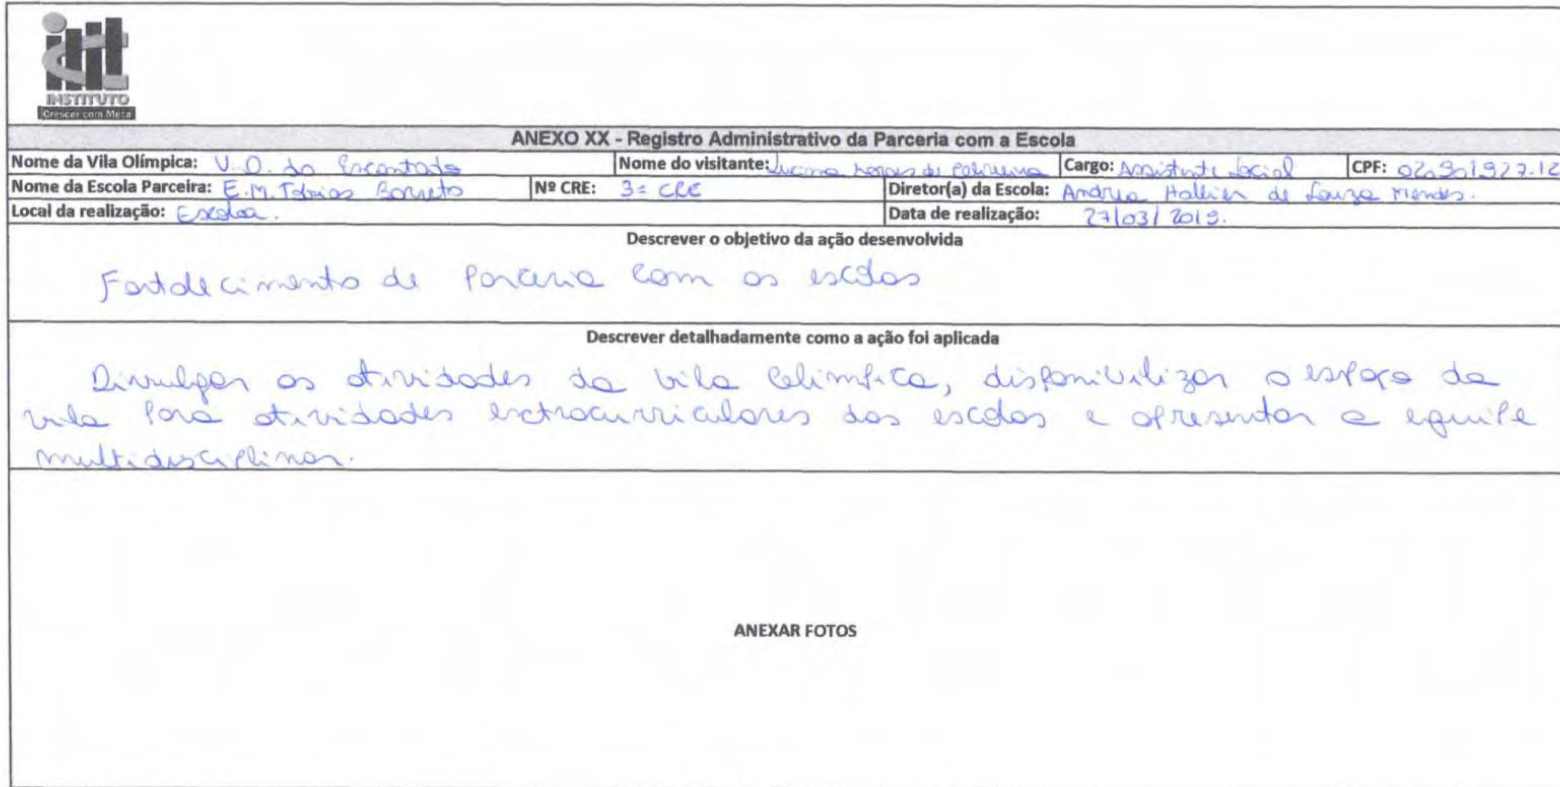 INSTITUTO
Crescer com Meta
ANEXO XX - Registro Administrativo da Parceria com a Escola
Nome da Vila Olímpica: V.O. do Encantado Nome do visitante: Luciana de Cargo: Assistente Social CPF:
Nome da Escola Parceira: E.M. Tobias Barreto Nº CRE: 3ª CRE Diretor(a) da Escola: Andrea Hallier de Souza Mendes.
Local da realização: Escola. Data de realização: 27/03/2019.
Descrever o objetivo da ação desenvolvida
Fortalecimento de Parceria com as escolas
Descrever detalhadamente como a ação foi aplicada
Divulgar as atividades da vila Olímpica, disponibilizar o espaço da
vila para atividades extracurriculares das escolas e apresentar a equipe
multidisciplinar.
ANEXAR FOTOS